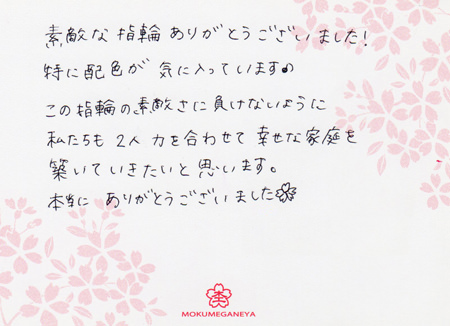 素敵な指輪ありがとうございました!
特に配色が気に入っています♪
この指輪の素敵さに負けないように
私たちも2人力を合わせて幸せな家庭を
築いていきたいと思います。
本当にありがとうございました
MOKUMEGANEYA